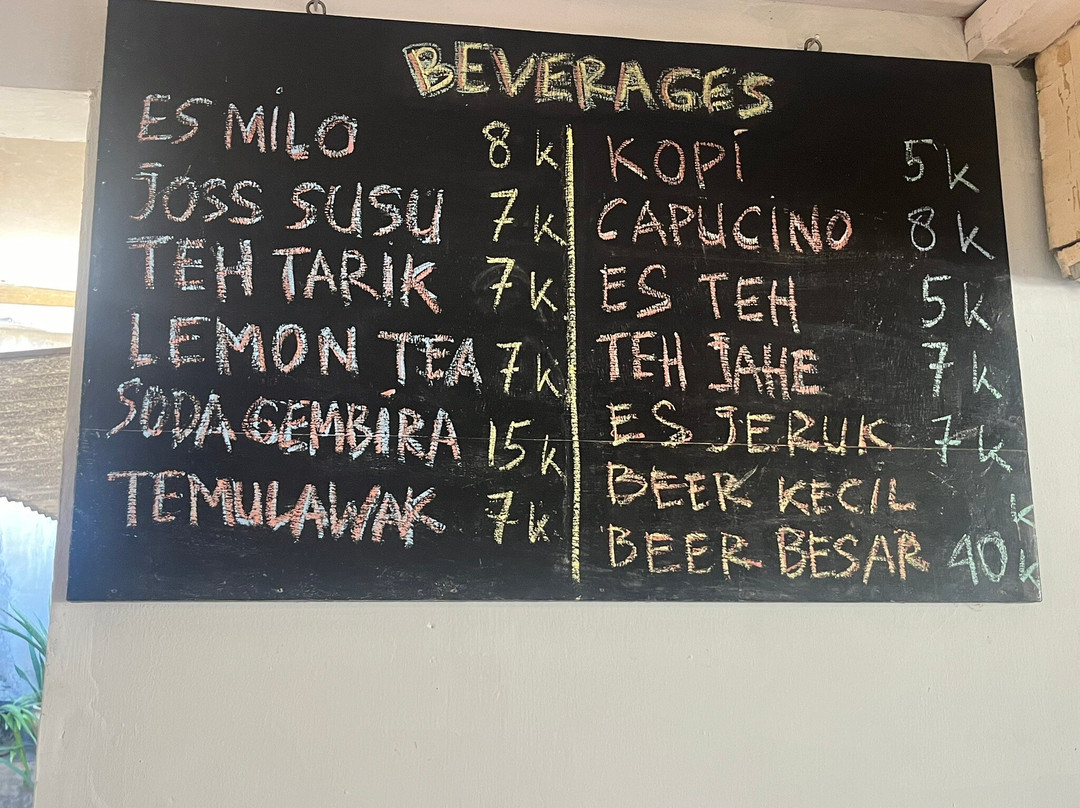 BEVERAGES
ES MILO 8k
JOSS SUSU 7k
TEH TARIK 7k
LEMON TEA 7k
SODA GEMBIRA 15k
TEMULAWAK 7k
KOPI 5k
CAPUCINO 8k
ES TEH 5k
TEH JAHE 7k
ES JERUK 7k
BEER KECIL k
BEER BESAR 40k